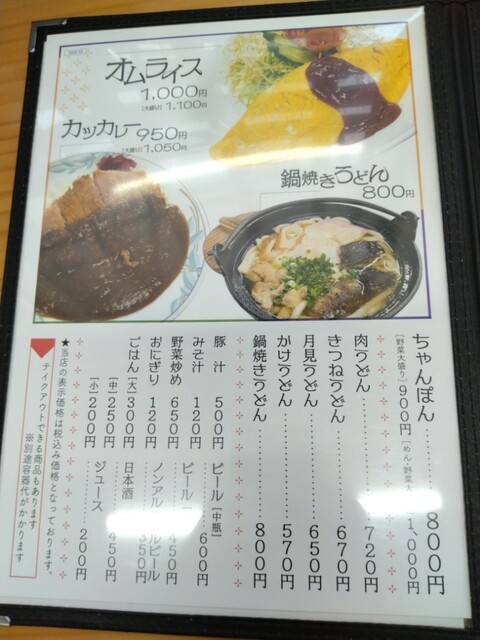 オムライス
1,000円
［大盛り］1,100円
カツカレー 950円
［大盛り］1,050円
鍋焼きうどん
800円
ちゃんぽん……800円
［野菜大盛り］900円 ［めん・野菜大 1,000円
肉うどん……720円
きつねうどん……670円
月見うどん……650円
かけうどん……570円
鍋焼きうどん……800円
豚汁 500円
みそ汁 120円
野菜炒め 650円
おにぎり 120円
ごはん［大］300円
［中］250円
［小］200円
ビール［中瓶］……600円
ビール 450円
ノンアルコールビール 350円
日本酒 450円
ジュース……200円
★当店の表示価格は税込み価格となっております。
テイクアウトできる商品もあります
※別途容器代がかかります